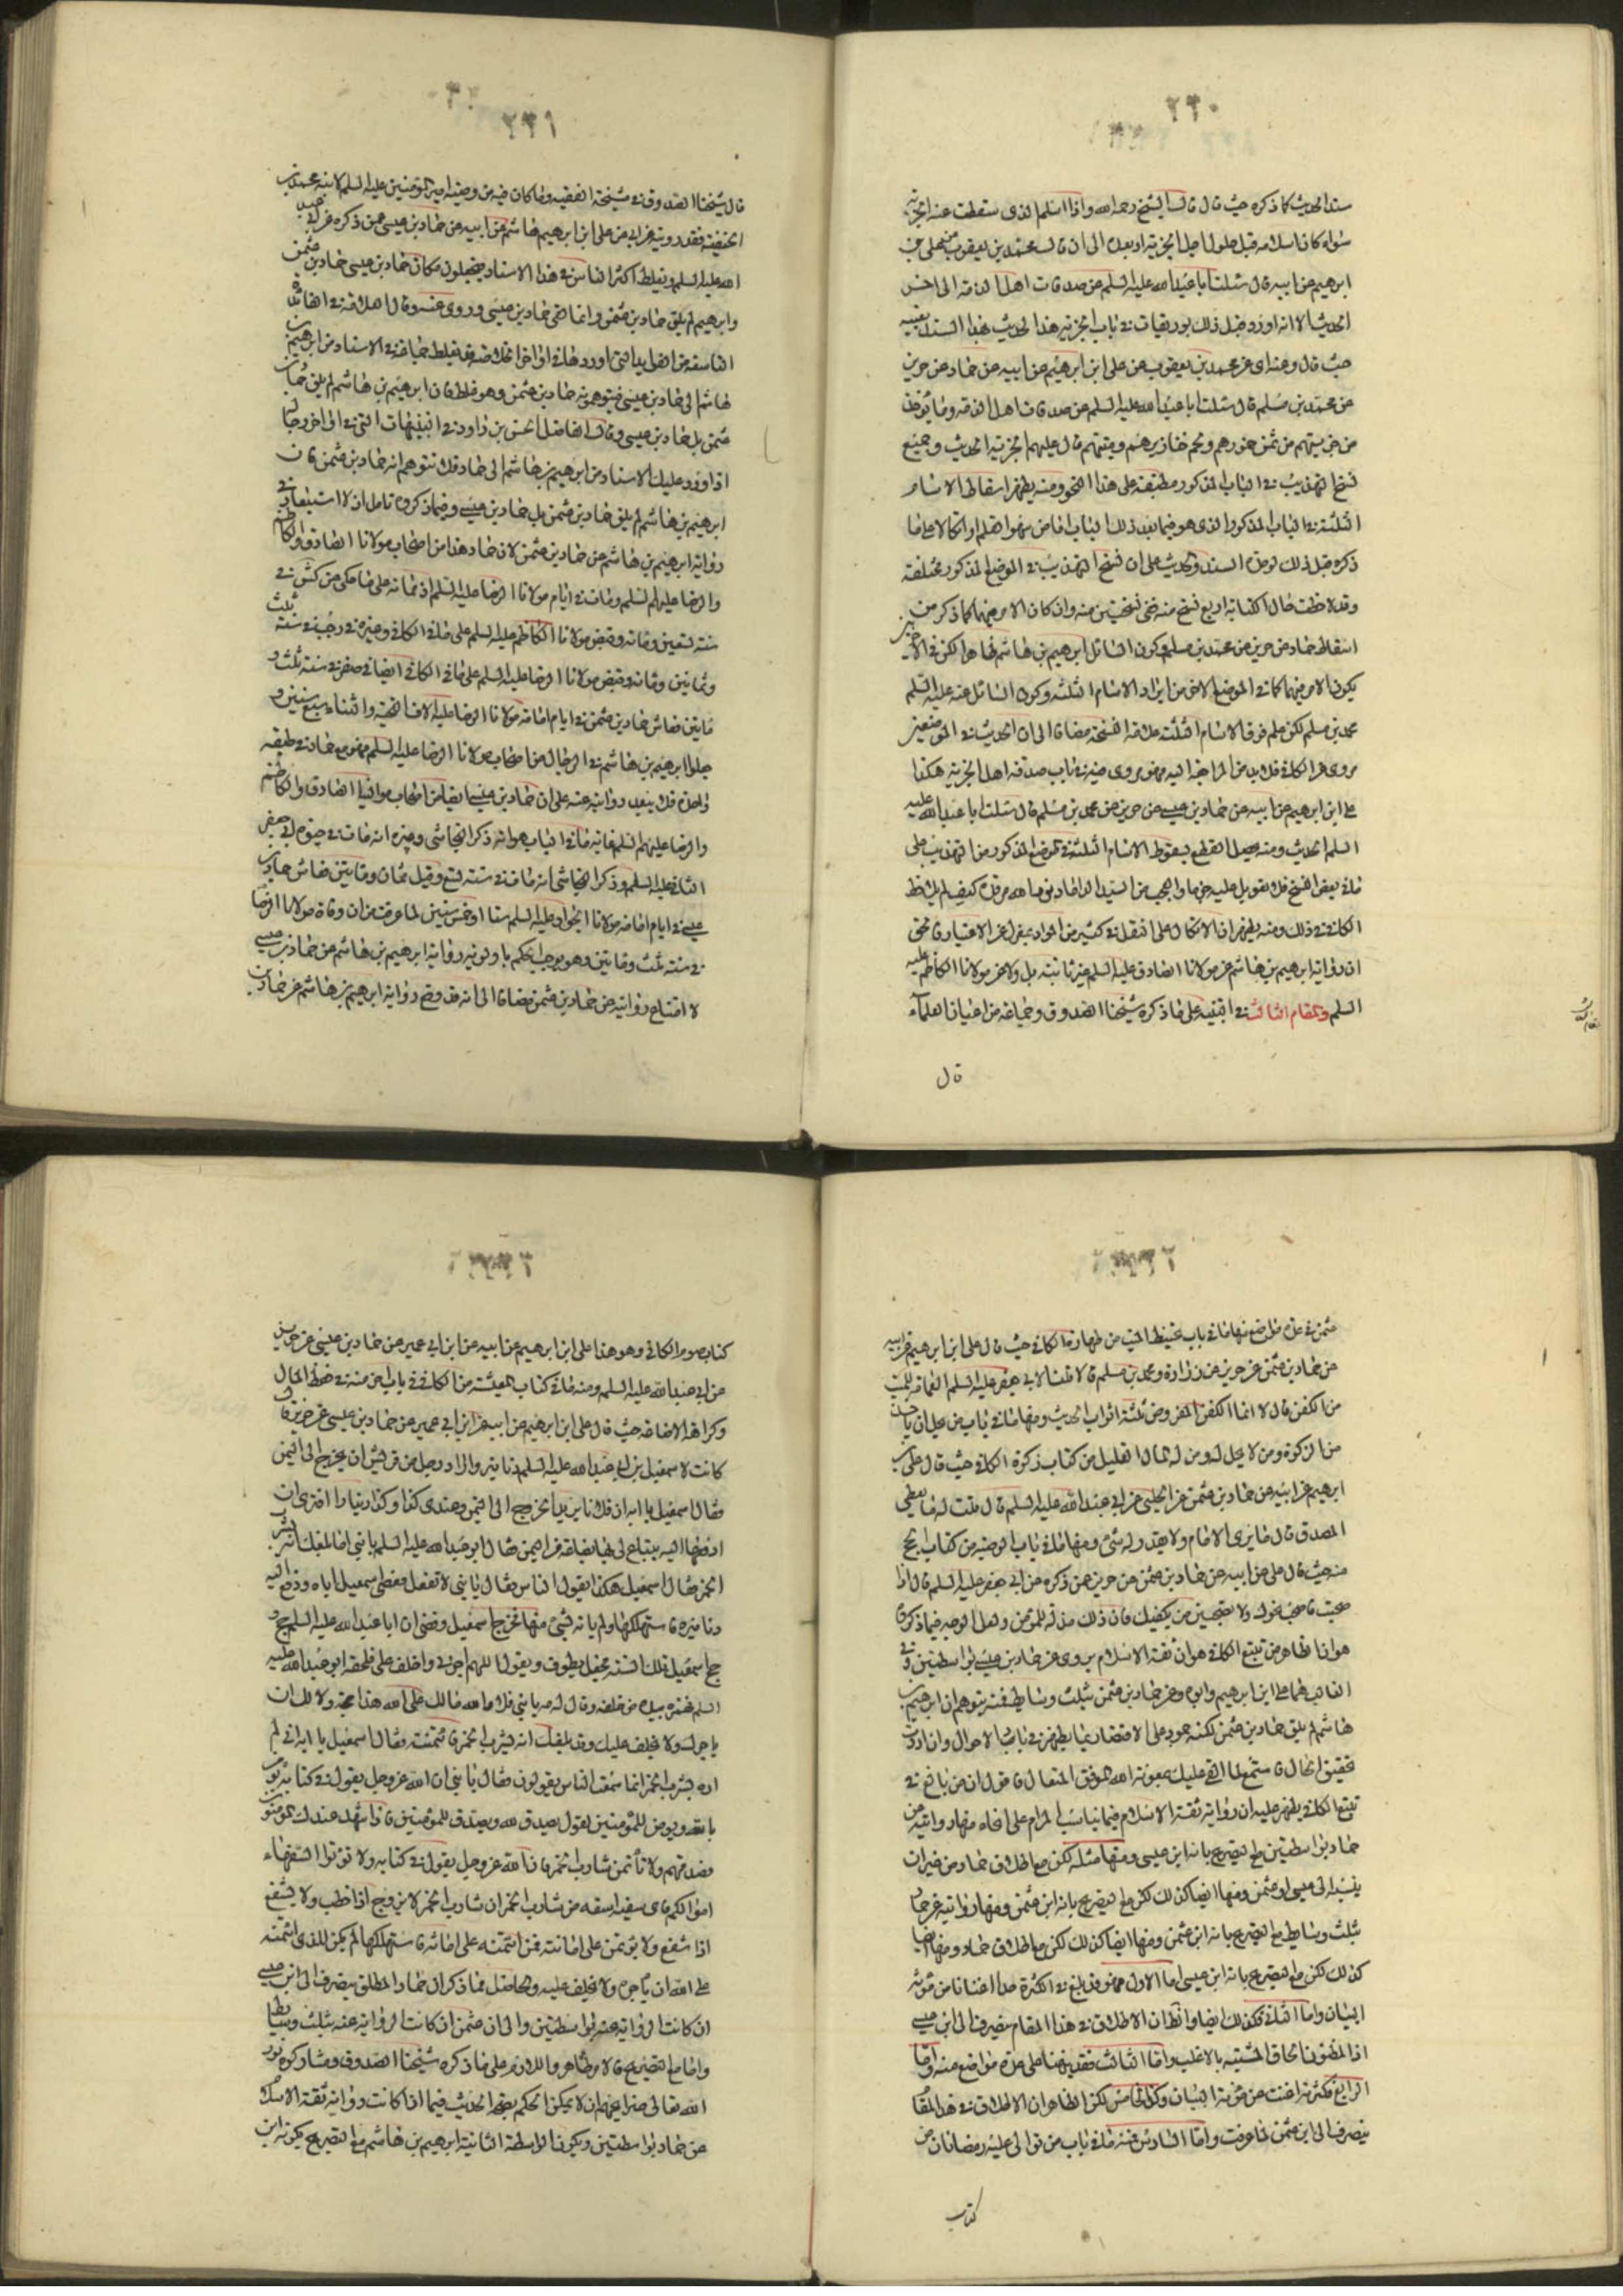 ٢٣٠
سند الحديث كما ذكره حيث قال قال الشيخ رحمه الله واذا اسلم الذى سقطت عنه الجزية
سواء كان اسلامه قبل حلول اجل الجزية او بعده الى ان قال محمد بن يعقوب عن على بن
ابرهيم عن ابيه قال سئلت ابا عبد الله عليه السلم عن صدقات اهل الذمة الى اخر
الحديث الا انه اورد قبل ذلك بوريقات فى باب الجزية هذا الحديث بهذا السند بعينه
حيث قال وعنه اى عن محمد بن يعقوب عن على ابن ابرهيم عن ابيه عن حماد عن حريز
عن محمد بن مسلم قال سئلت ابا عبد الله عليه السلم عن صدقات اهل الذمة وما يؤخذ
من جزيتهم من ثمن خمورهم ولحم خنازيرهم وميتتهم قال عليهم الجزية الحديث وجميع
نسخ التهذيب فى الباب المذكور مطبقة على هذا النحو ومنه يظهر اسقاط الاسام
الثلثة فى الباب المذكور الذى هو فيما بعد ذلك الباب اما من سهو القلم او اتكالا على ما
ذكره قبل ذلك لوحدة السند والحديث على ان نسخ التهذيب فى الموضع المذكور مختلفة
وقد لاحظت حال الكتابة اربع نسخ منه ففى نسختين منه وان كان الامر فيهما كما ذكر من
اسقاط حماد عن حريز عن محمد بن مسلم وكون السائل ابرهيم بن هاشم ظاهرا لكن فى الاخيرتين
يكون الامر فيهما كما فى الموضع الاخر من ايراد الاسام الثلثة وكون السائل عنه عليه السلم
محمد بن مسلم لكن علم فوق الاسام الثلثة علامة النسخة مضافا الى ان الحديث فى الموضعين
مروى عن الكافى فلا بد من المراجعة اليه وهو مروى فيه فى باب صدقة اهل الجزية هكذا
على ابن ابرهيم عن ابيه عن حماد بن عيسى عن حريز عن محمد بن مسلم قال سئلت ابا عبد الله عليه
السلم الحديث ومنه يحصل القطع بسقوط الاسام الثلثة فى الموضع المذكور من التهذيب على
ما فى بعض النسخ فلا تعويل عليه جزما والعجب من السيد الداماد نور الله مرقده كيف لم يلاحظ
الكافى فى ذلك ومنه يظهر ان الاتكال على النقل فى كثير من المواد بمعزل عن الاعتبار فالحق
ان رواية ابرهيم بن هاشم عن مولانا الصادق عليه السلم غير ثابتة بل ولا عن مولانا الكاظم عليه
السلم والمقام الثالث فى التنبيه على ما ذكره شيخنا الصدوق وجماعة من اعيان العلماء
قال
٢٣١
قال شيخنا الصدوق فى مشيخة الفقيه وما كان فيه من وصية امير المؤمنين عليه السلم لابنه محمد بن
الحنفية فقد رويته عن ابى عن على ابن ابرهيم هاشم عن ابيه عن حماد بن عيسى عمن ذكره عن ابى عبد
الله عليه السلم ويغلط اكثر الناس فى هذا الاسناد فيجعلون مكان حماد بن عيسى حماد بن عثمن
وابرهيم لم يلق حماد بن عثمن وانما لقى حماد بن عيسى وروى عنه وقال العلامة فى الفائدة
التاسعة من الفوايد التى اوردها فى اواخر الخلاصة قد يغلط جماعة فى الاسناد من ابرهيم بن
هاشم الى حماد بن عيسى فيتوهمونه حماد بن عثمن وهو غلط فان ابرهيم بن هاشم لم يلق حماد بن
عثمن بل حماد بن عيسى وقال الفاضل الحسن بن داود فى التنبيهات التى فى اواخر رجاله
اذا ورد عليك الاسناد من ابرهيم بن هاشم الى حماد فلا تتوهم انه حماد بن عثمن فان
ابرهيم بن هاشم لم يلق حماد بن عثمن بل حماد بن عيسى وفيما ذكروه تامل اذ لا استبعاد فى
رواية ابرهيم بن هاشم عن حماد بن عثمن لان حماد هذا من اصحاب مولانا الصادق والكاظم
والرضا عليهم السلم ومات فى ايام مولانا الرضا عليه السلم اذ مماته على ما حكى عن كش فى
سنة تسعين ومائة وقبض مولانا الكاظم عليه السلم على ما فى الكافى وغيره فى رجب فى سنة ثلث
وثمانين ومائة وقبض مولانا الرضا عليه السلم على ما فى الكافى ايضا فى صفر فى سنة ثلث و
مأتين فعاش حماد بن عثمن فى ايام امامة مولانا الرضا عليه الاف التحية والثناء سبع سنين و
عدوا ابرهيم بن هاشم فى الرجال من اصحاب مولانا الرضا عليه السلم فهو مع حماد فى طبقة
واحدة فلا يبعد روايته عنه على ان حماد بن عيسى ايضا من اصحاب موالينا الصادق والكاظم
والرضا عليهم السلم غاية ما فى الباب هو انه ذكر النجاشى وغيره انه مات فى حيوة ابى جعفر
الثانى عليه السلم وذكر النجاشى انه مات فى سنة تسع وقيل ثمان ومأتين فعاش حماد بن
عيسى فى ايام امامة مولانا الجواد عليه السلم ستا او خمس سنين لما عرفت من ان وفاة مولانا الرضا
فى سنة ثلث ومأتين وهو يوجب الحكم باولوية رواية ابرهيم بن هاشم عن حماد بن عيسى
لا امتناع روايته عن حماد بن عثمن مضافا الى انه قد وقع رواية ابرهيم بن هاشم عن حماد بن
٢٣٢
عثمن فى عدة مواضع منها ما فى باب تحنيط الميت من طهارة الكافى حيث قال على ابن ابرهيم عن ابيه
عن حماد بن عثمن عن حريز عن زرارة ومحمد بن مسلم قالا قلنا لابى جعفر عليه السلم العمامة للميت
من الكفن قال لا انما الكفن المفروض ثلثة اثواب الحديث ومنها ما فى باب من يحل ان ياخذ
من الزكوة ومن لا يحل له ومن له المال القليل من كتاب زكوة الكافى حيث قال على بن
ابرهيم عن ابيه عن حماد بن عثمن عن الحلبى عن ابى عبد الله عليه السلم قال قلت له ما يعطى
المصدق قال ما يرى الامام ولا يقدر له شئ ومنها ما فى باب الوصية من كتاب الحج
منه حيث قال على عن ابيه عن حماد بن عثمن عن حريز عمن ذكره عن ابى جعفر عليه السلم قال اذا
صحبت فاصحب نحوك ولا تصحبن من يكفيك فان ذلك مذلة للمؤمن ولعل الوجه فيما ذكروه
هو ان الظاهر من تتبع الكافى هو ان ثقة الاسلام يروى عن حماد بن عيسى بواسطتين وفى
الغالب هما على ابن ابرهيم وابوه وعن حماد بن عثمن بثلث وسايط فمنه يتوهم ان ابرهيم بن
هاشم لم يلق حماد بن عثمن لكنه جمود على الاقتصار بما يظهر فى بادى الاحوال وان اردت
تحقيق الحال فاستمع لما القى عليك بعون الله الموفق المتعال فاقول ان من بالغ فى
تتبع الكافى يظهر عليه ان رواية ثقة الاسلام فيما يناسب المرام على انحاء منها روايته عن
حماد بواسطتين مع التصريح بانه ابن عيسى ومنها مثله لكن مع اطلاق حماد من غير ان
ينسب الى عيسى او عثمن ومنها ايضا كذلك لكن مع التصريح بانه ابن عثمن ومنها روايته عن حماد
بثلث وسايط مع التصريح بانه ابن عثمن ومنها ايضا كذلك لكن مع اطلاق حماد ومنها ايضا
كذلك لكن مع التصريح بانه ابن عيسى اما الاول فهو قد بلغ فى الكثرة حدا اغنانا من مؤنة
البيان واما الثانى فكذلك ايضا والظ ان الاطلاق فى هذا المقام منصرف الى ابن عيسى
اذ المظنون الحاق المشتبه بالاغلب واما الثالث فقد نبهنا على عدة مواضع منه واما
الرابع فكثرته اغنت عن مؤنة البيان وكذا الخامس لكن الظاهر ان الاطلاق فى هذا المقام
ينصرف الى ابن عثمن لما عرفت واما السادس فمنه ما فى باب من توالى عليه رمضانان من
كتاب
٢٣٣
كتاب صوم الكافى وهو هذا على ابن ابرهيم عن ابيه عن ابن ابى عمير عن حماد بن عيسى عن حريز
عن ابى عبد الله عليه السلم ومنه ما فى كتاب المعيشة من الكافى فى باب اخر منه فى حفظ المال
وكراهة الاضاعة حيث قال على ابن ابرهيم عن ابيه عن ابن ابى عمير عن حماد بن عيسى عن حريز قال
كانت لاسمعيل بن ابى عبد الله عليه السلم دنانير واراد رجل من قريش ان يخرج الى اليمن
فقال اسمعيل يا ابه ان فلانا يريد الخروج الى اليمن وعندى كذا وكذا دينارا افترى ان
ادفعها اليه يبتاع لى بها بضاعة من اليمن فقال ابو عبد الله عليه السلم يا بنى اما بلغك انه يشرب
الخمر فقال اسمعيل هكذا يقول الناس فقال يا بنى لا تفعل فعصى اسمعيل اباه ودفع اليه
دنانيره فاستهلكها ولم ياته بشئ منها فخرج اسمعيل وقضى ان ابا عبد الله عليه السلم حج و
حج اسمعيل تلك السنة فجعل يطوف ويقول اللهم اجرنى واخلف على فلحقه ابو عبد الله عليه
السلم فهمزه بيده من خلفه وقال له مه يا بنى فلا والله مالك على الله هذا حجة ولا لك ان
ياجرك ولا يخلف عليك وقد بلغك انه يشرب الخمر فائتمنته فقال اسمعيل يا ابه انى لم
اره يشرب الخمر انما سمعت الناس يقولون فقال يا بنى ان الله عز وجل يقول فى كتابه يؤمن
بالله ويؤمن للمؤمنين يقول يصدق لله ويصدق للمؤمنين فاذا شهد عندك المؤمنون
فصدقهم ولا تأتمن شارب الخمر فان الله عز وجل يقول فى كتابه ولا تؤتوا السفهاء
اموالكم فاى سفيه اسفه من شارب الخمر ان شارب الخمر لا يزوج اذا خطب ولا يشفع
اذا شفع ولا يؤتمن على امانته فمن ائتمنه على امانة فاستهلكها لم يكن للذى ائتمنه
على الله ان ياجره ولا يخلف عليه والحاصل مما ذكر ان حماد المطلق ينصرف الى ابن عيسى
ان كانت الرواية عنه بواسطتين والى ابن عثمن ان كانت الرواية عنه بثلث وسايط
واما مع التصريح فالامر ظاهر واللازم على ما ذكره شيخنا الصدوق ومشاركوه نور
الله تعالى ضرايحهم ان لا يمكن الحكم بصحة الحديث فيما اذا كانت رواية ثقة الاسلام
عن حماد بواسطتين ويكون الواسطة الثانية ابرهيم بن هاشم مع التصريح بكونه ابن